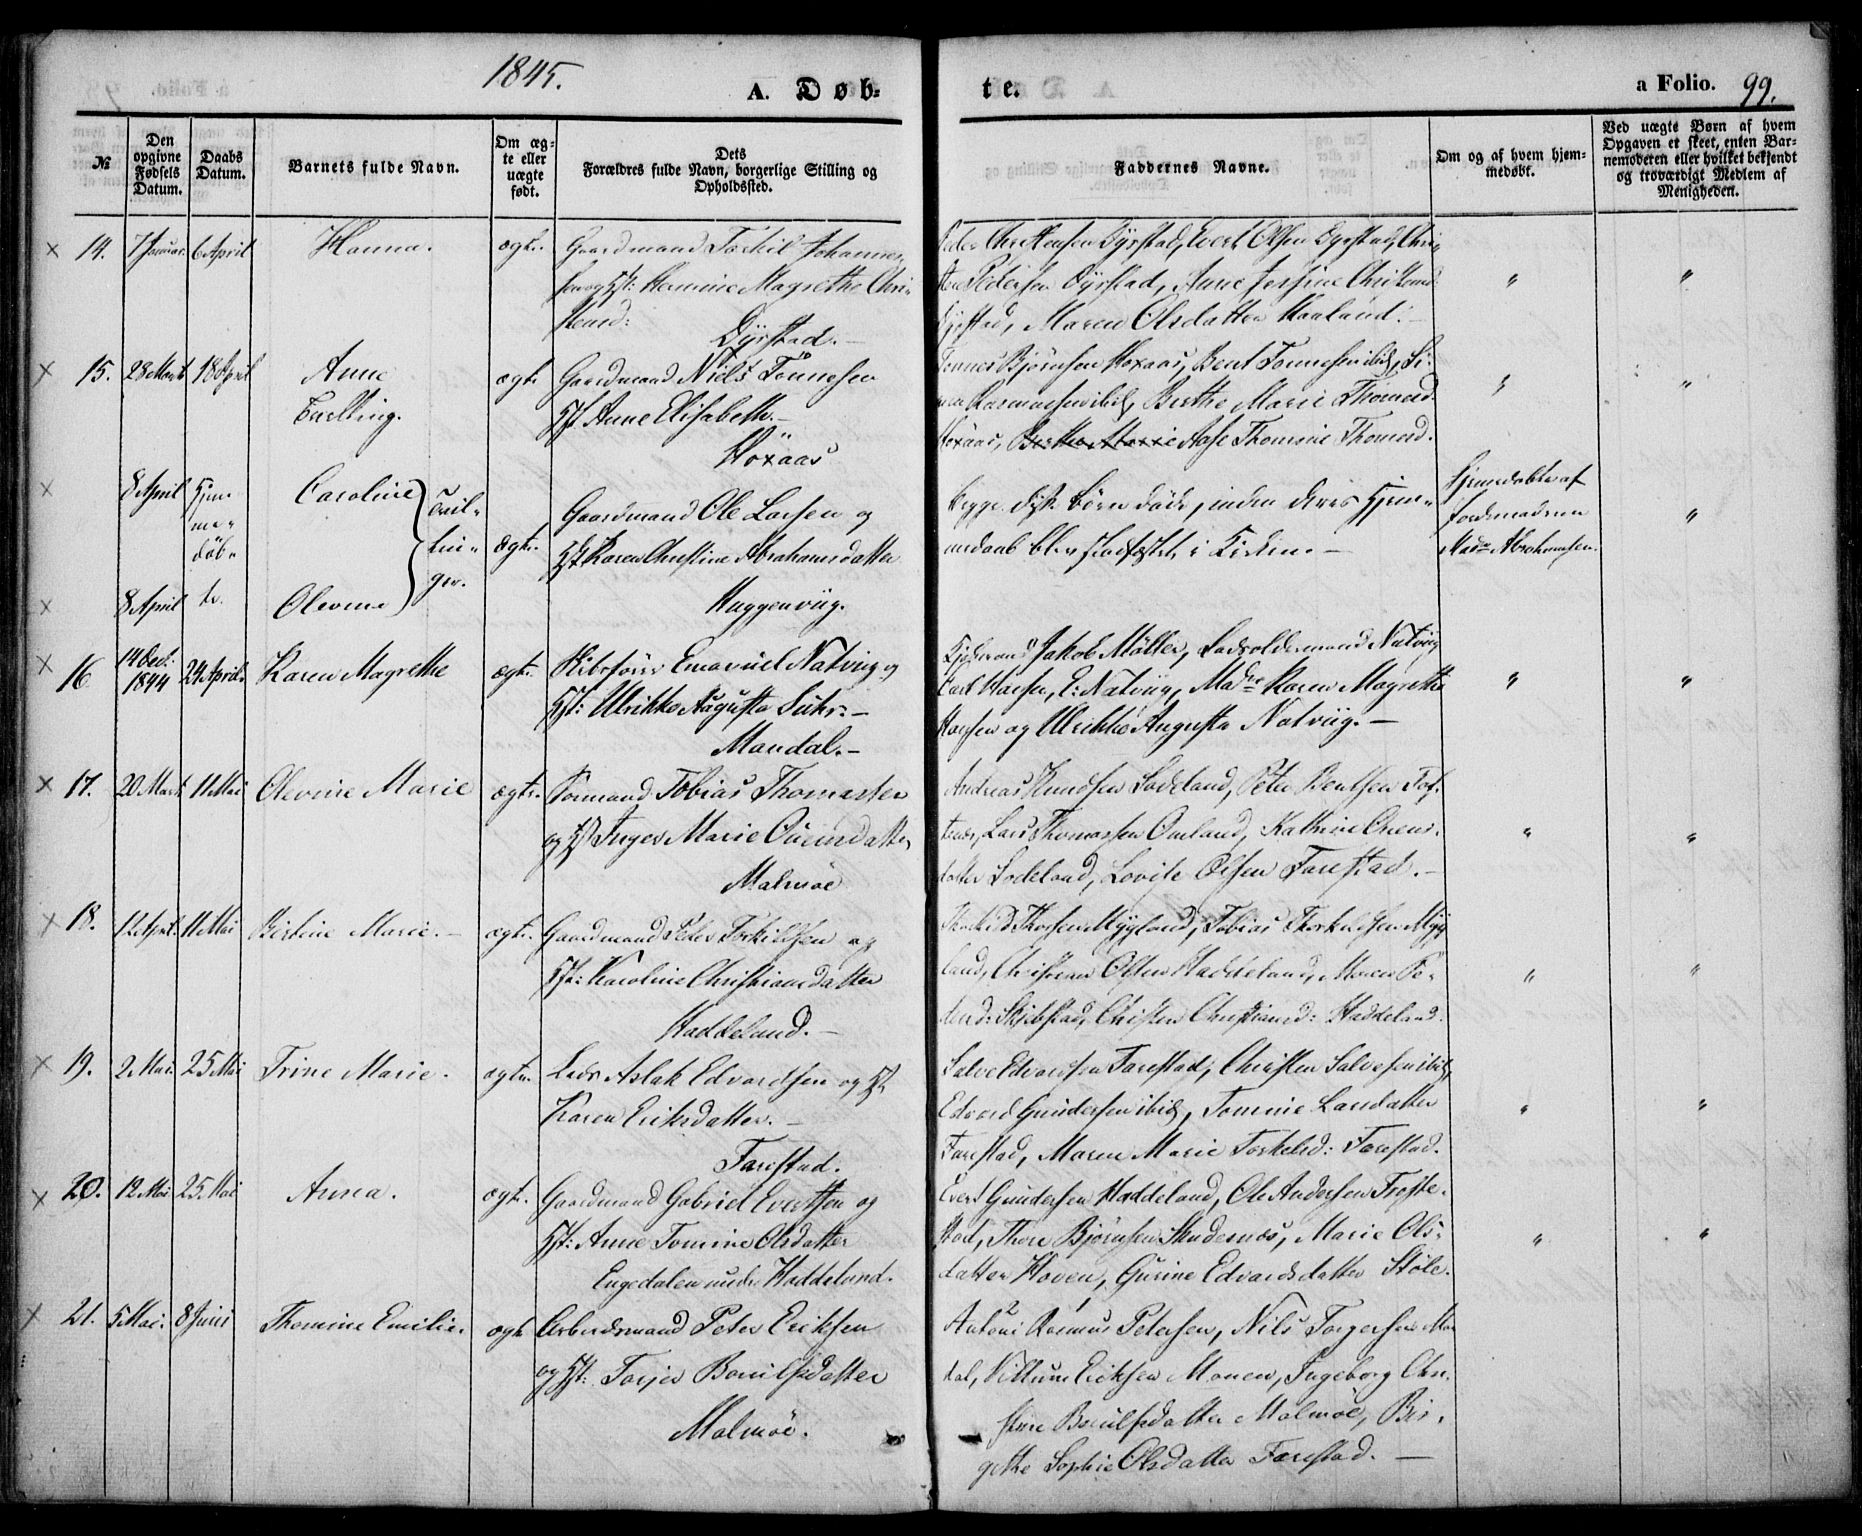 1845.
A. Døb-
te.
a Folio. 99.
№
Den opgivne Fødsels Datum.
Daabs Datum.
Barnets fulde Navn.
Om ægte eller uægte født.
Dets Forældres fulde Navn, borgerlige Stilling og Opholdssted.
Faddernes Navne.
Om og af hvem hjemmedøbt.
Ved uægte Børn af hvem Opgaven er skeet, enten Barnemoderen eller hvilket bekjendt og troværdigt Medlem af Menigheden.
14. 7 Januar. 6 April Hanna. ægte. Gaardmand Torkil Johannes-
sen og Hst: Hermine Magrethe Chri-
stensd:
Dyrstad.-
Peder Christensen Dyrstad, Evert Olsen Dyrstad, Chri-
sten Pedersen Dyrstad, Anne Jossine Christensd:
Dyrstad, Maren Olsdatter Kaaland.- " "
15. 28 Marts 18 April Anne ægte Gaardmand Niels Tønnesen
Tvilling. Hst Anne Elisabeth.-
Høxaas
Tønnes Bjørnsen Høxaas, Bent Tønnesen ibid, Si-
Rasmussen ibid, Berthe Marie Thomesd.
Høxaas, Berthe Marie Aase Thomine Thomesd. " "
8 April Hjem-
me-
døb-
te.
Caroline
Tvil-
lin-
ger.
8 April Olevine
ægte.
Gaardmand Ole Larsen og
Hst Karen Christine Abrahamsdatter
Huggenviig.
Begge disse børn døde, inden deres Hjem-
medaab blev stadfæstet i Kirken.-
Hjemdøbte af
Jordemoderen
Mad: Abrahamsen. "
16 14 Dect: 1844 24 April. Karen Magrethe ægte. Skibsfører Emanuel Natvig og
Hst: Ulrikke Augusta Suhr.-
Mandal.-
Kjøbmand Jakob Møller, Lodsoldermand Natvig
Carl Hansen, E: Natviig, Mad: Karen Magrethe
Hansen og Ulrikke Augusta Natviig.- " "
17. 20 Marts 11 Mai Olevine Marie ægte. Sømand Tobias Thomassen
og Hst Inger Marie Ouensdatter
Malmøe
Andreas Knudsen Lodeland, Peter Bentsen Tof-
tenæs, Lars Thomassen Omland, Kathrine Ouens-
datter Lodeland, Lovise Olsen Farestad.- " "
18. 12 April. 11 Mai Birtine Marie.- ægte. Gaardmand Peter Torkildsen og
Hst: Karoline Christiansdatter
Haddeland.-
Thorkild Thorsen Mygland, Tobias Thorkildsen Myg-
land, Christian Olsen Haddeland, Maren To-
Skjebstad, Christen Christiansd: Haddeland. " "
19. 2 Mai. 25 Mai Trine Marie. ægte. Lods Aslak Edvardsen og Hst
Karen Eriksdatter.-
Farestad.
Salve Edvardsen Farestad, Christen Salvesen ibid,
Edvard Gundersen ibid, Tomine Larsdatter
Farestad, Maren Marie Torkelsd: Farestad. " "
20. 12 Mai 25 Mai Anna. ægte. Gaardmand Gabriel Evertsen og
Hst: Anne Tomine Olsdatter
Engedalen under Haddeland.
Evert Gundersen Haddeland, Ole Andersen Troste-
stad, Thore Bjørnsen Skudesnæs, Marie Ols-
datter Hoven, Gurine Edvardsdatter Støle. " "
21. 5 Mai. 8 Juni Thomine Emilie. ægte Arbeidsmand Peter Eriksen
og Hst: Torjer Boiulfsdatter
Malmøe.
Antoni Rasmus Petersen, Nils Torgersen Man-
dal, Villum Eriksen Monen, Ingeborg Chri-
stine Boiulfsdatter Malmøe, Bir-
gitte Sophie Olsdatter Farestad.-